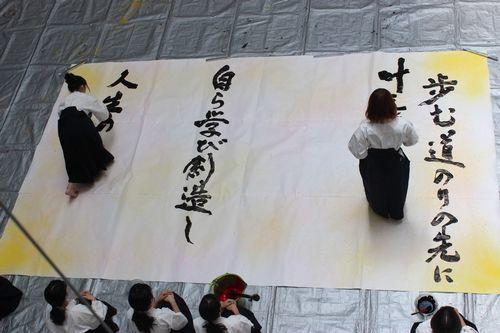 歩む道のりの先に
叶
自ら学び創造し
人生の